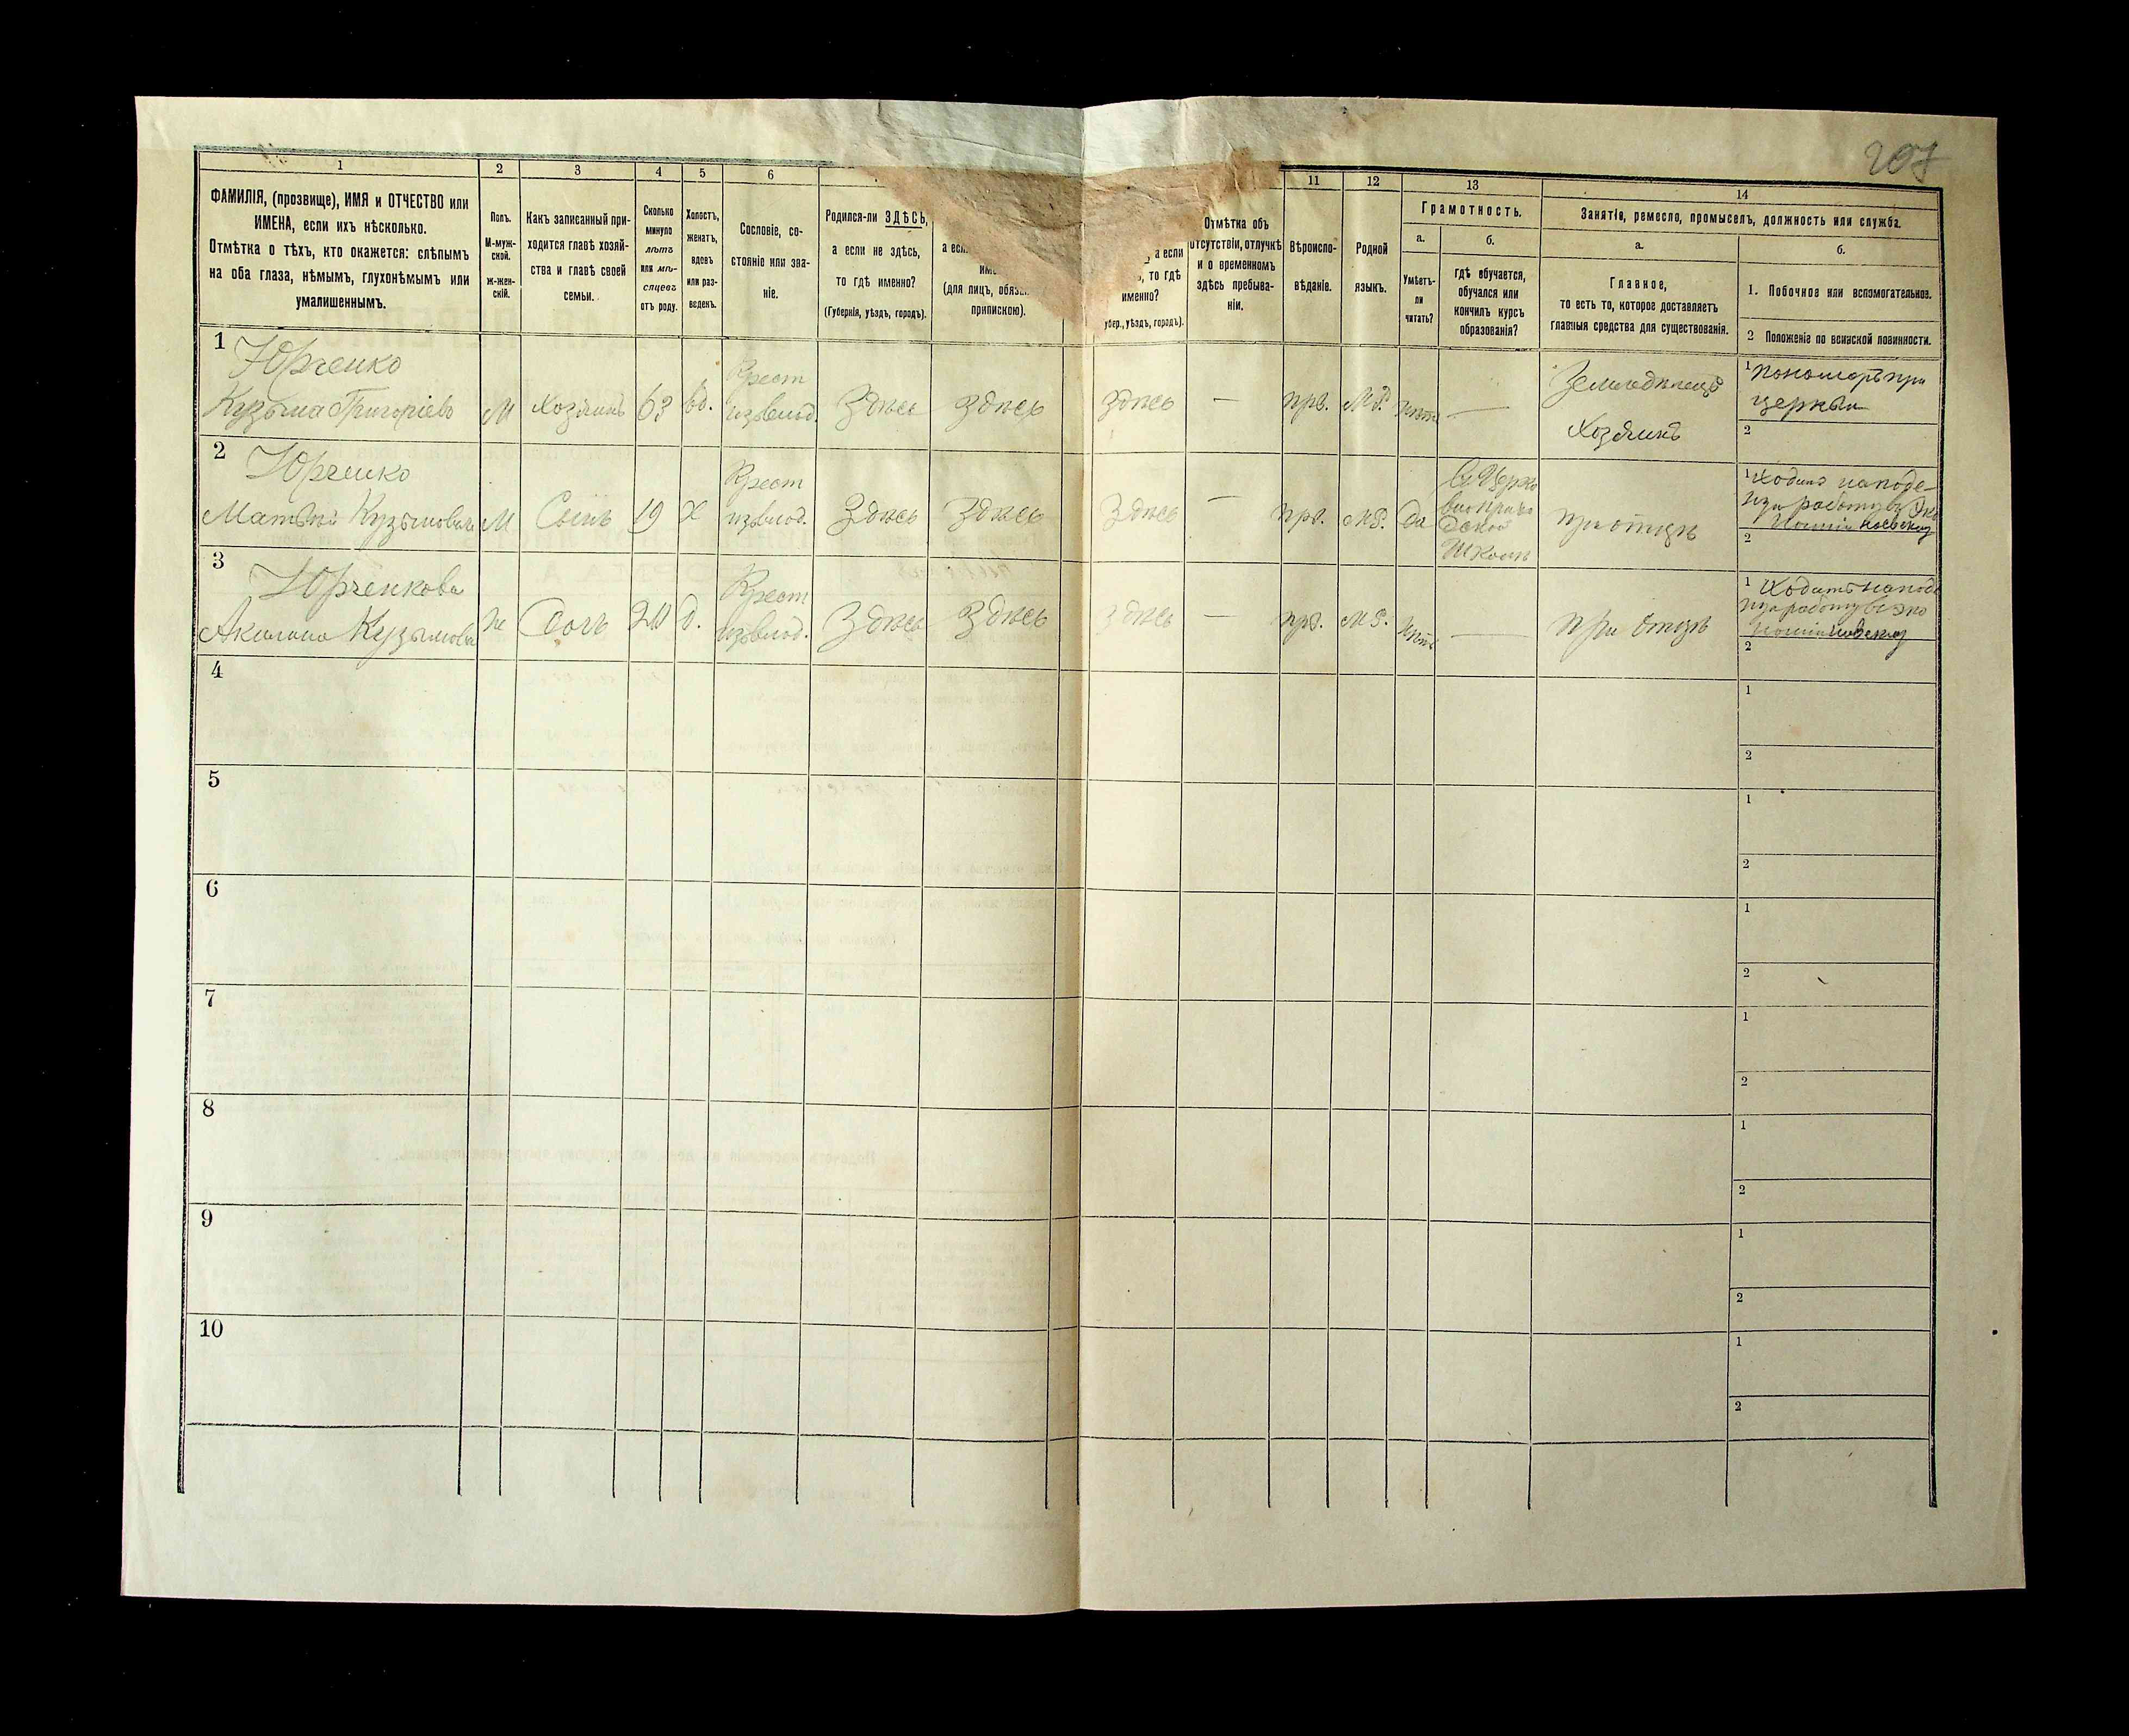 207
1
2
3
4
5
6
11
12
13
14
ФАМИЛІЯ, (прозвище), ИМЯ и ОТЧЕСТВО или
ИМЕНА, если ихъ нѣсколько.
Отмѣтка о тѣхъ, кто окажется: слѣпымъ
на оба глаза, нѣмымъ, глухонѣмымъ или
умалишеннымъ.
Полъ.
М-муж-
ской.
ж-жен-
скій.
Какъ записанный при-
ходится главѣ хозяй-
ства и главѣ своей
семьи.
Сколько
минуло
лѣтъ
или мѣ-
сяцевъ
отъ роду.
Холостъ,
женатъ,
вдовъ
или раз-
веденъ.
Сословіе, со-
стояніе или зва-
ніе.
Родился-ли ЗДѢСЬ,
а если не здѣсь,
то гдѣ именно?
(Губернія, уѣздъ, городъ).
а есл
име
(для лицъ, обяза
припискою).
а если
, то гдѣ
именно?
убер., уѣздъ, городъ).
Отмѣтка объ
отсутствіи, отлучкѣ
и о временномъ
здѣсь пребыва-
ніи.
Вѣроиспо-
вѣданіе.
Родной
языкъ.
Грамотность.
а.
Умѣетъ-
ли
читать?
б.
гдѣ обучается,
обучался или
кончилъ курсъ
образованія?
Занятіе, ремесло, промыселъ, должность или служба.
а.
Главное,
то есть то, которое доставляетъ
главныя средства для существованія.
б.
1. Побочное или вспомогательное.
2 Положеніе по воинской повинности.
1
Юрченко
Кузьма Григоріевъ
М
Хозяинъ
63
вд.
Крест
изъ влад.
Здѣсь
Здѣсь
Здѣсь
—
прв.
М.Р.
нѣтъ
—
Земледѣлецъ
Хозяинъ
1 Пономарь при
церкви
2
2
Юрченко
Матвѣй Кузьмовичъ
М
Сынъ
19
Х
Крест
изъ влад.
Здѣсь
Здѣсь
Здѣсь
—
прв.
М.Р.
Да
Въ Церко
вно прихо
дской
Школѣ
при отцѣ
1 Ходитъ на поде-
нную работу въ Эко
2
3
Юрченкова
Акилина Кузьмова
ж
Дочь
24
д.
Крест
изъ влад.
Здѣсь
Здѣсь
Здѣсь
—
прв.
М.Р.
нѣтъ
—
при отцѣ
1 Ходитъ на поде
нную работу въ эко
2
4
1
2
5
1
2
6
1
2
7
1
2
8
1
2
9
1
2
10
1
2